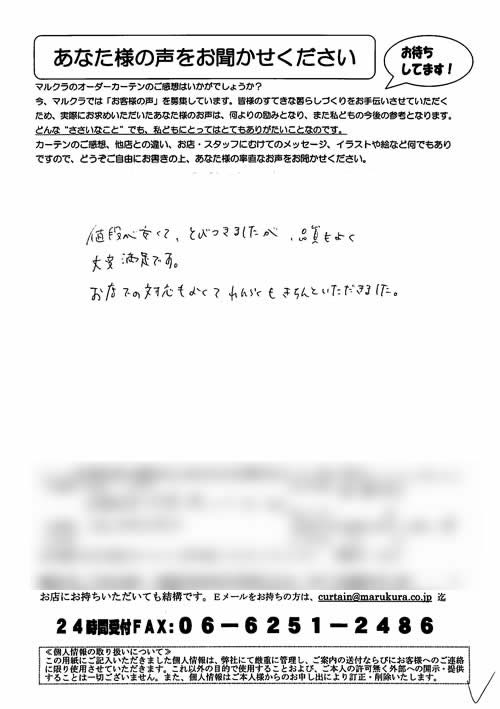 あなた様の声をお聞かせください
お待ち
してます！
マルクラのオーダーカーテンのご感想はいかがでしょうか？
今、マルクラでは「お客様の声」を募集しています。皆様のすてきな暮らしづくりをお手伝いさせていただく
ため、実際にお求めいただいたあなた様のお声は、何よりの励みとなり、また私どもの今後の参考となります。
どんな“ささいなこと”でも、私どもにとってはとてもありがたいことなのです。
カーテンのご感想、他店との違い、お店・スタッフにむけてのメッセージ、イラストや絵など何でもあり
ですので、どうぞご自由にお書きの上、あなた様の率直なお声をお聞かせください。
値段が安くて、とびつきましたが、品質もよく
大変満足です。
お店での対応もよくてれんらくもきちんといただきました。
お店にお持ちいただいても結構です。Eメールをお持ちの方は、curtain@marukura.co.jp 迄
24時間受付FAX:06-6251-2486
≪個人情報の取り扱いについて≫
この用紙にご記入いただきました個人情報は、弊社にて厳重に管理し、ご案内の送付ならびにお客様へのご連絡
に限り使用させていただきます。これ以外の目的で使用することおよび、ご本人の許可無く外部への開示・提供
することは一切ございません。また、個人情報はご本人様からのお申し出により訂正・削除いたします。